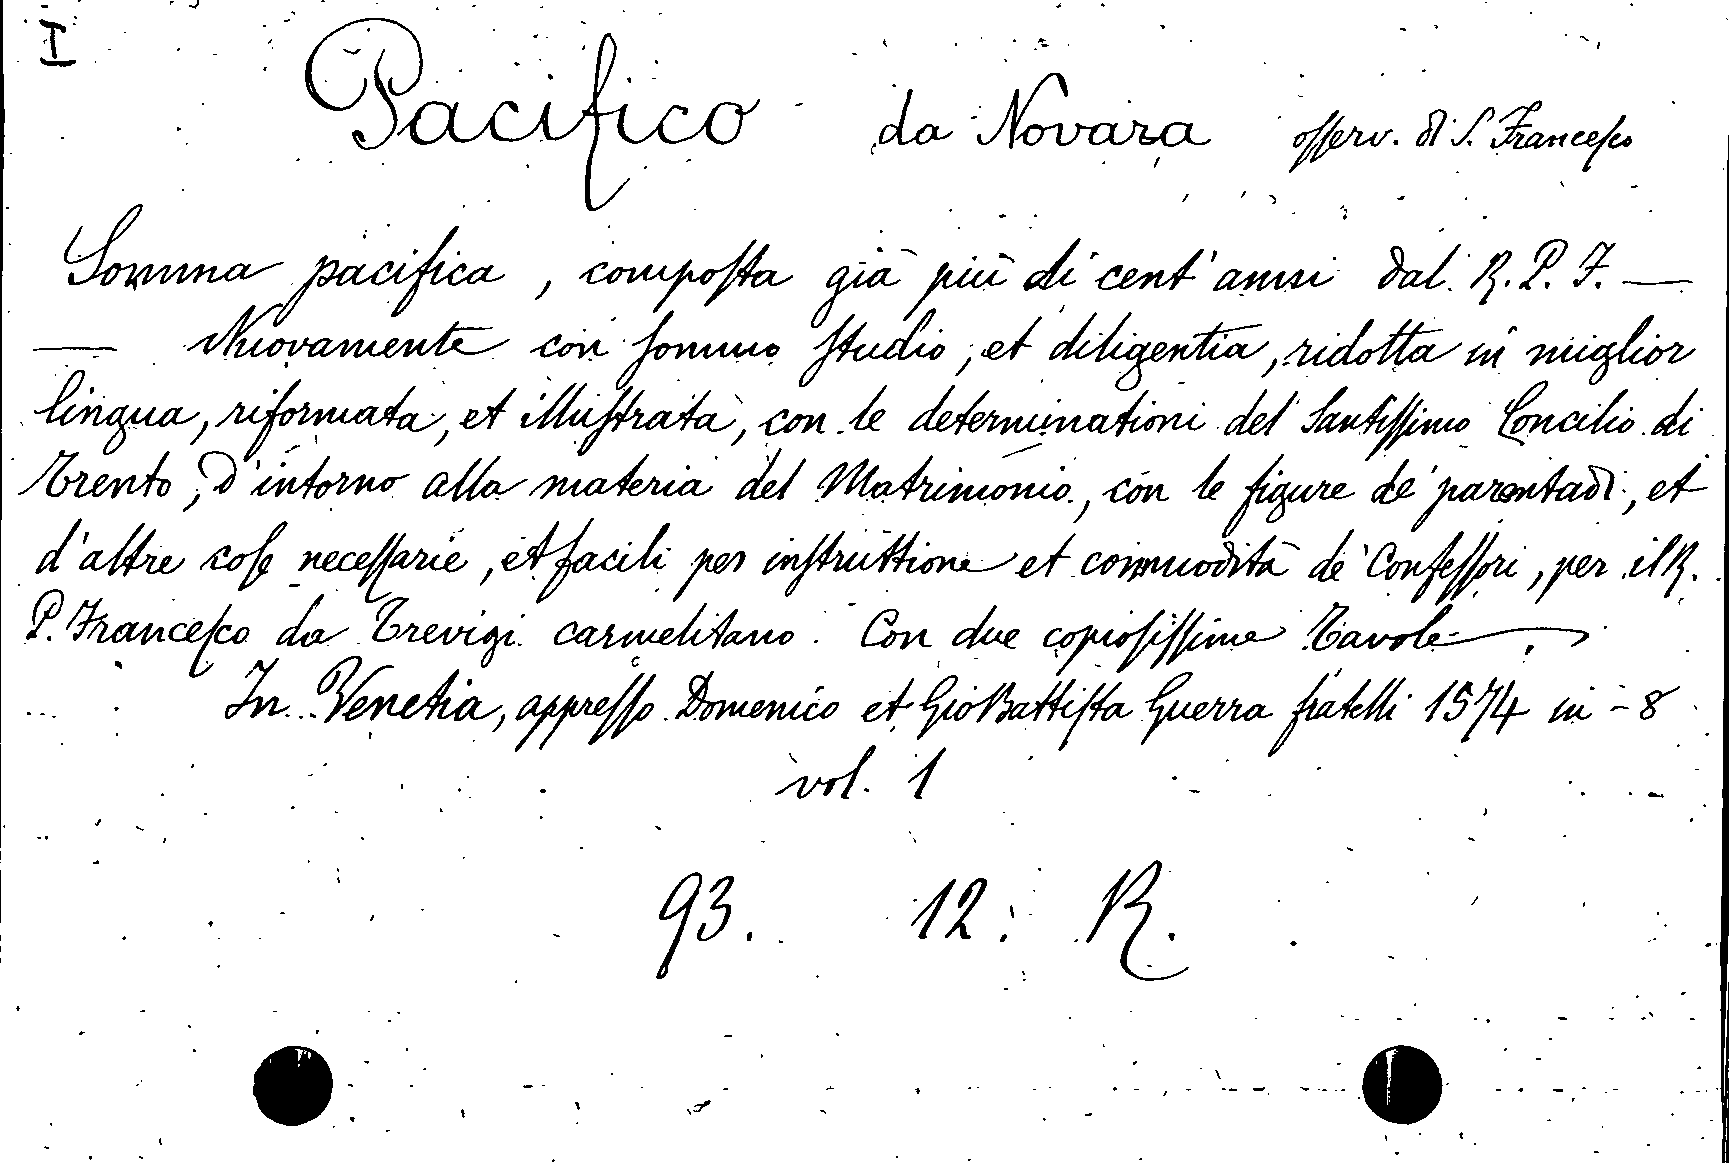 I
Pacifico da Novara osserv. di S. Francesco
Somma pacifica, composta già più di cent'anni dal R. P. F. —
— Nuovamente con sommo studio, et diligentia, ridotta in miglior
lingua, riformata, et illustrata, con le determinationi del Santissimo Concilio di
Trento, d'intorno alla materia del Matrimonio, con le figure de' parentadi, et
d'altre cose necessarie, et facili per instruttione et commodità de' Confessori, per il R.
P. Francesco da Trevigi carmelitano. Con due copiosissime Tavole.
In Venetia, appresso Domenico et Gio Battista Guerra fratelli 1574 in-8
vol. 1
93. 12. R.